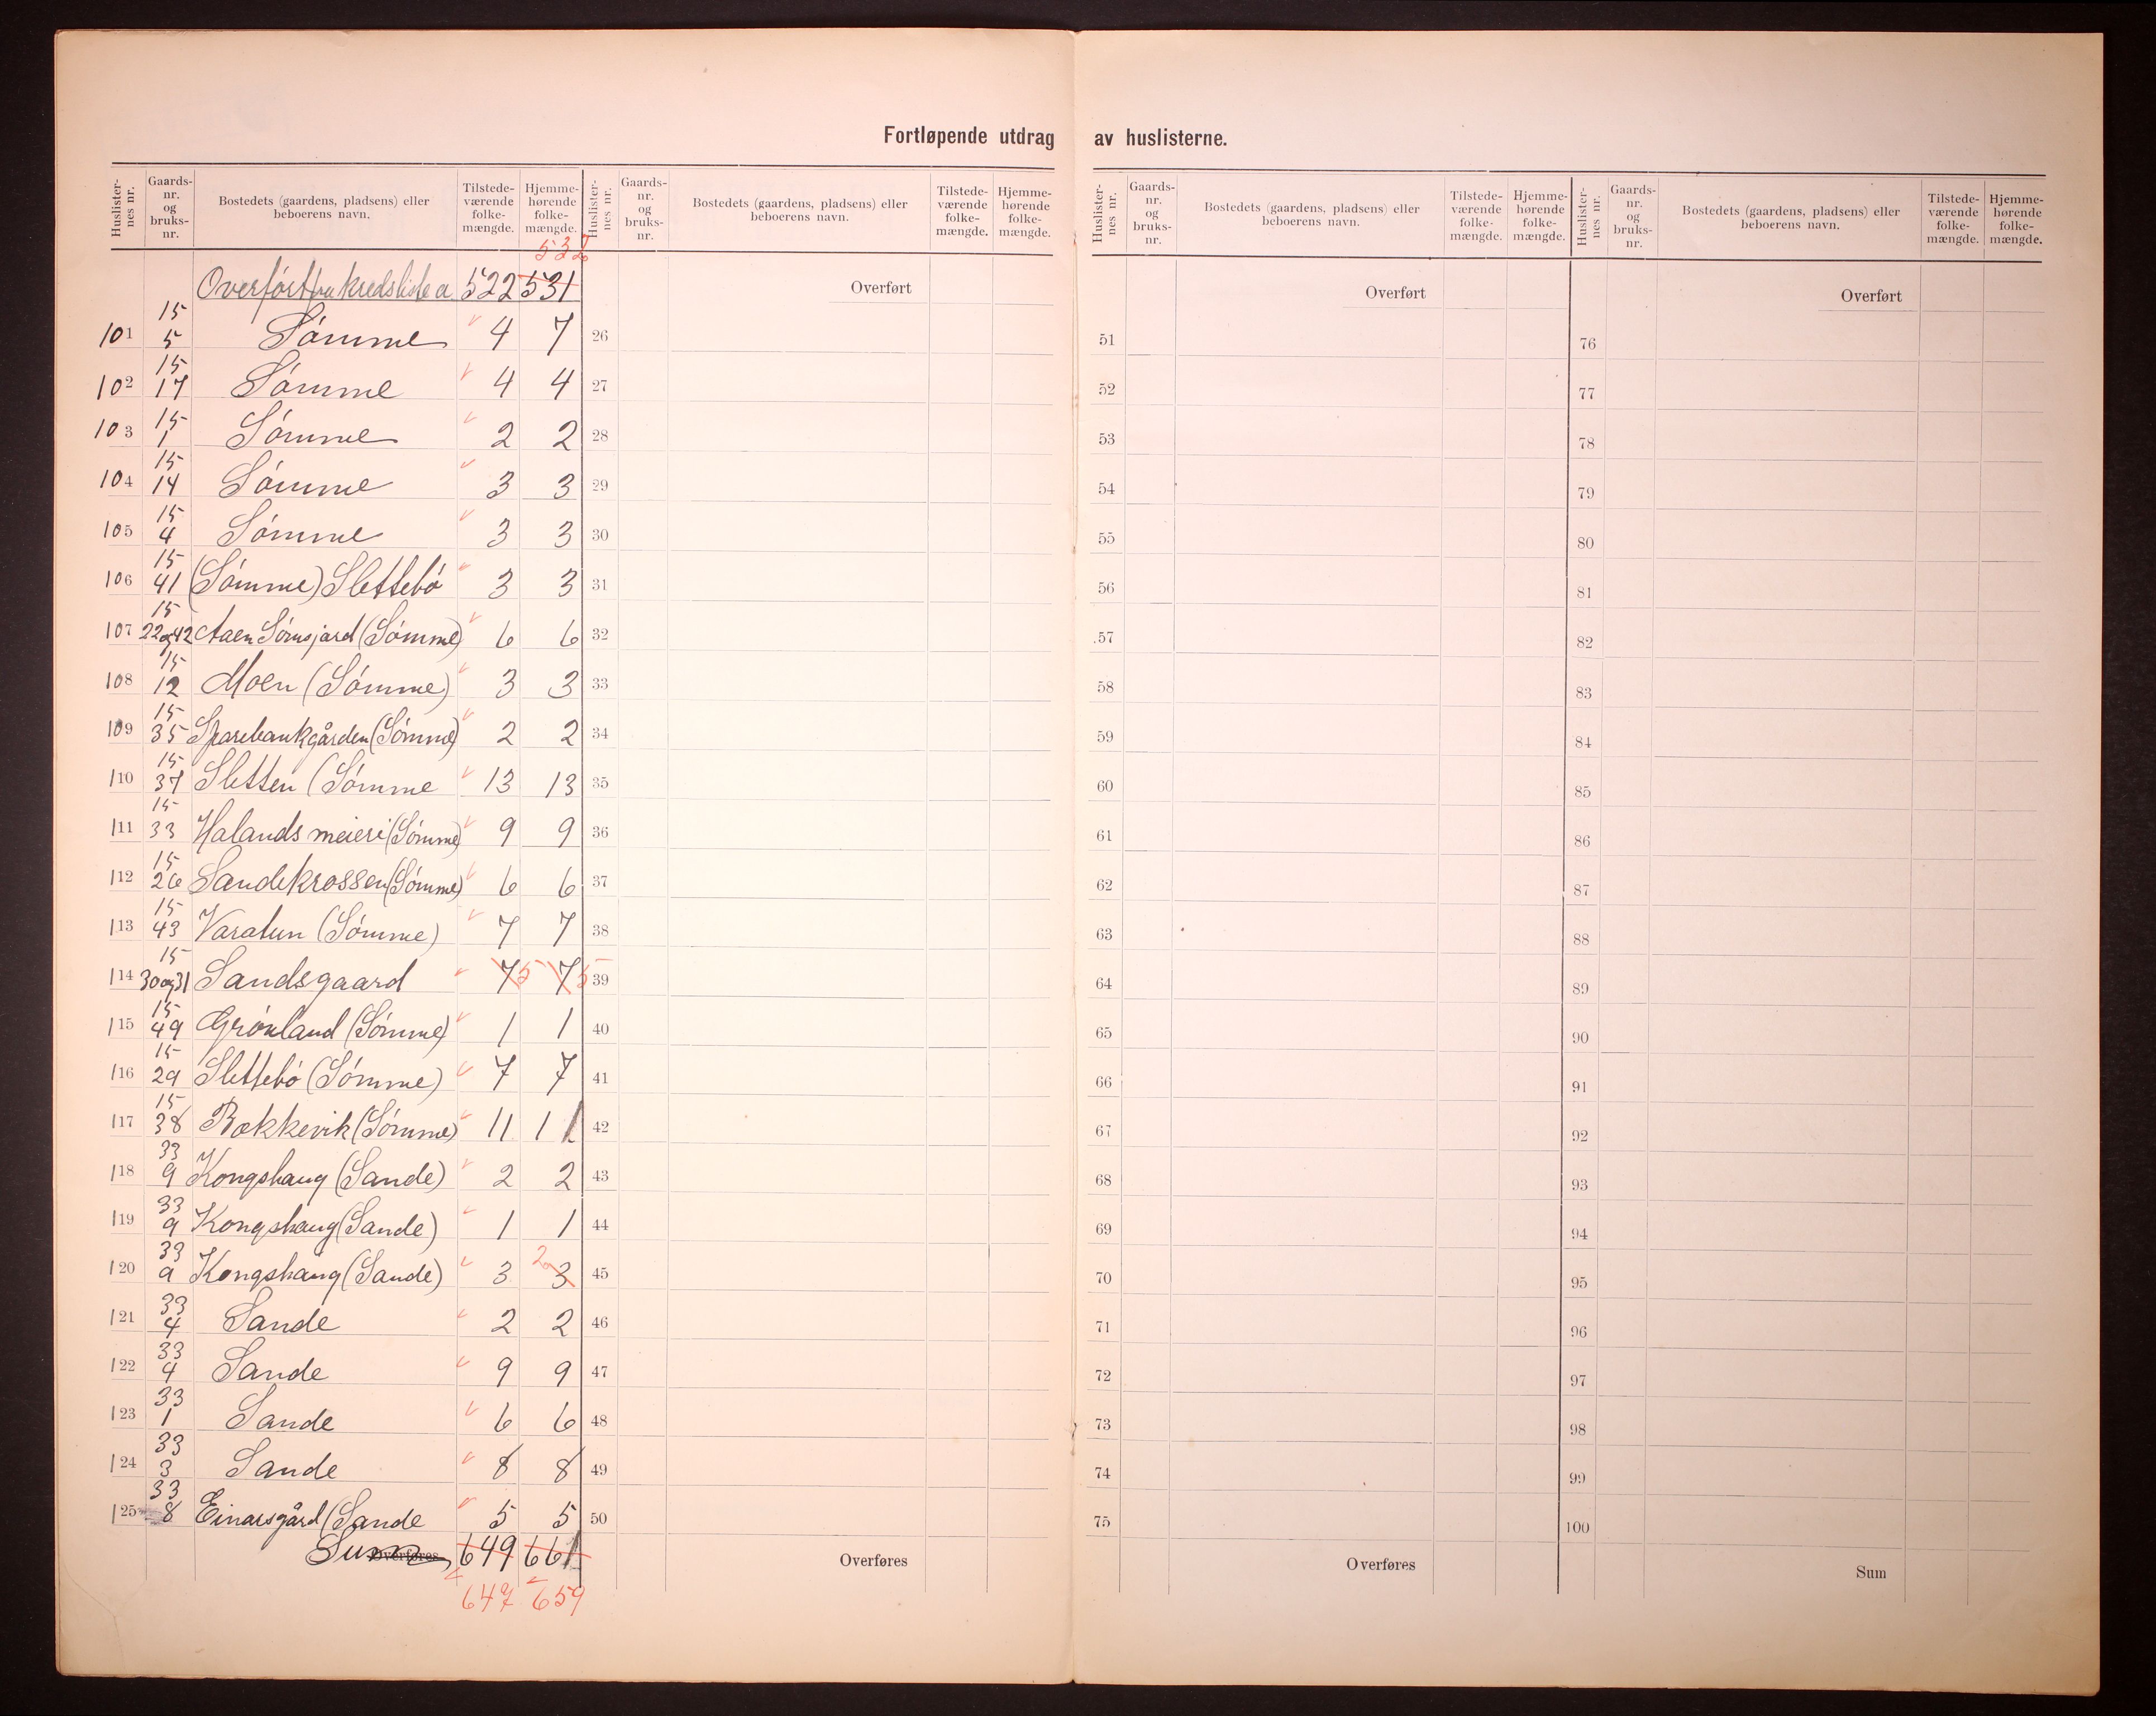 Fortløpende utdrag av huslisterne.
Huslisternes nr. Gaards-nr. og bruks-nr. Bostedets (gaardens, pladsens) eller beboerens navn. Tilstedeværende folkemængde. Hjemmehørende folkemængde.
Huslisternes nr. Gaards-nr. og bruks-nr. Bostedets (gaardens, pladsens) eller beboerens navn. Tilstedeværende folkemængde. Hjemmehørende folkemængde.
Huslisternes nr. Gaards-nr. og bruks-nr. Bostedets (gaardens, pladsens) eller beboerens navn. Tilstedeværende folkemængde. Hjemmehørende folkemængde.
Huslisternes nr. Gaards-nr. og bruks-nr. Bostedets (gaardens, pladsens) eller beboerens navn. Tilstedeværende folkemængde. Hjemmehørende folkemængde.
Overført fra kredsliste a 522 531
101 15 5 Sómme 4 7
102 15 17 Sómme 4 4
103 15 1 Sómme 2 2
104 15 14 Sómme 3 3
105 15 4 Sómme 3 3
106 15 41 (Sómme) Slettebó 3 3
107 15 22og42 (Sómme) 6 6
108 15 12 Moen (Sómme) 3 3
109 15 35 Sparebankgården (Sómme) 2 2
110 15 37 Sletten (Sómme 13 13
111 15 33 Halands meieri (Sómme) 9 9
112 15 26 Sandekrossen (Sómme) 6 6
113 15 43 Varatun (Sómme) 7 7
114 15 30og31 Sandsgaard 7 5 7 5
115 15 49 Grónland (Sómme) 1 1
116 15 29 Slettebó (Sómme) 7 7
117 15 38 Rokkevik (Sómme) 11 11
118 33 9 Kongshaug (Sande) 2 2
119 33 9 Kongshaug (Sande) 1 1
120 33 9 Kongshaug (Sande) 3 2 3
121 33 4 Sande 2 2
122 33 4 Sande 9 9
123 33 1 Sande 6 6
124 33 3 Sande 8 8
125 33 8 Einarsgård (Sande 5 5
Sum Overføres 649 661
647 659
Overført
26
27
28
29
30
31
32
33
34
35
36
37
38
39
40
41
42
43
44
45
46
47
48
49
50
Overføres
Overført
51
52
53
54
55
56
57
58
59
60
61
62
63
64
65
66
67
68
69
70
71
72
73
74
75
Overføres
Overført
76
77
78
79
80
81
82
83
84
85
86
87
88
89
90
91
92
93
94
95
96
97
98
99
100
Sum